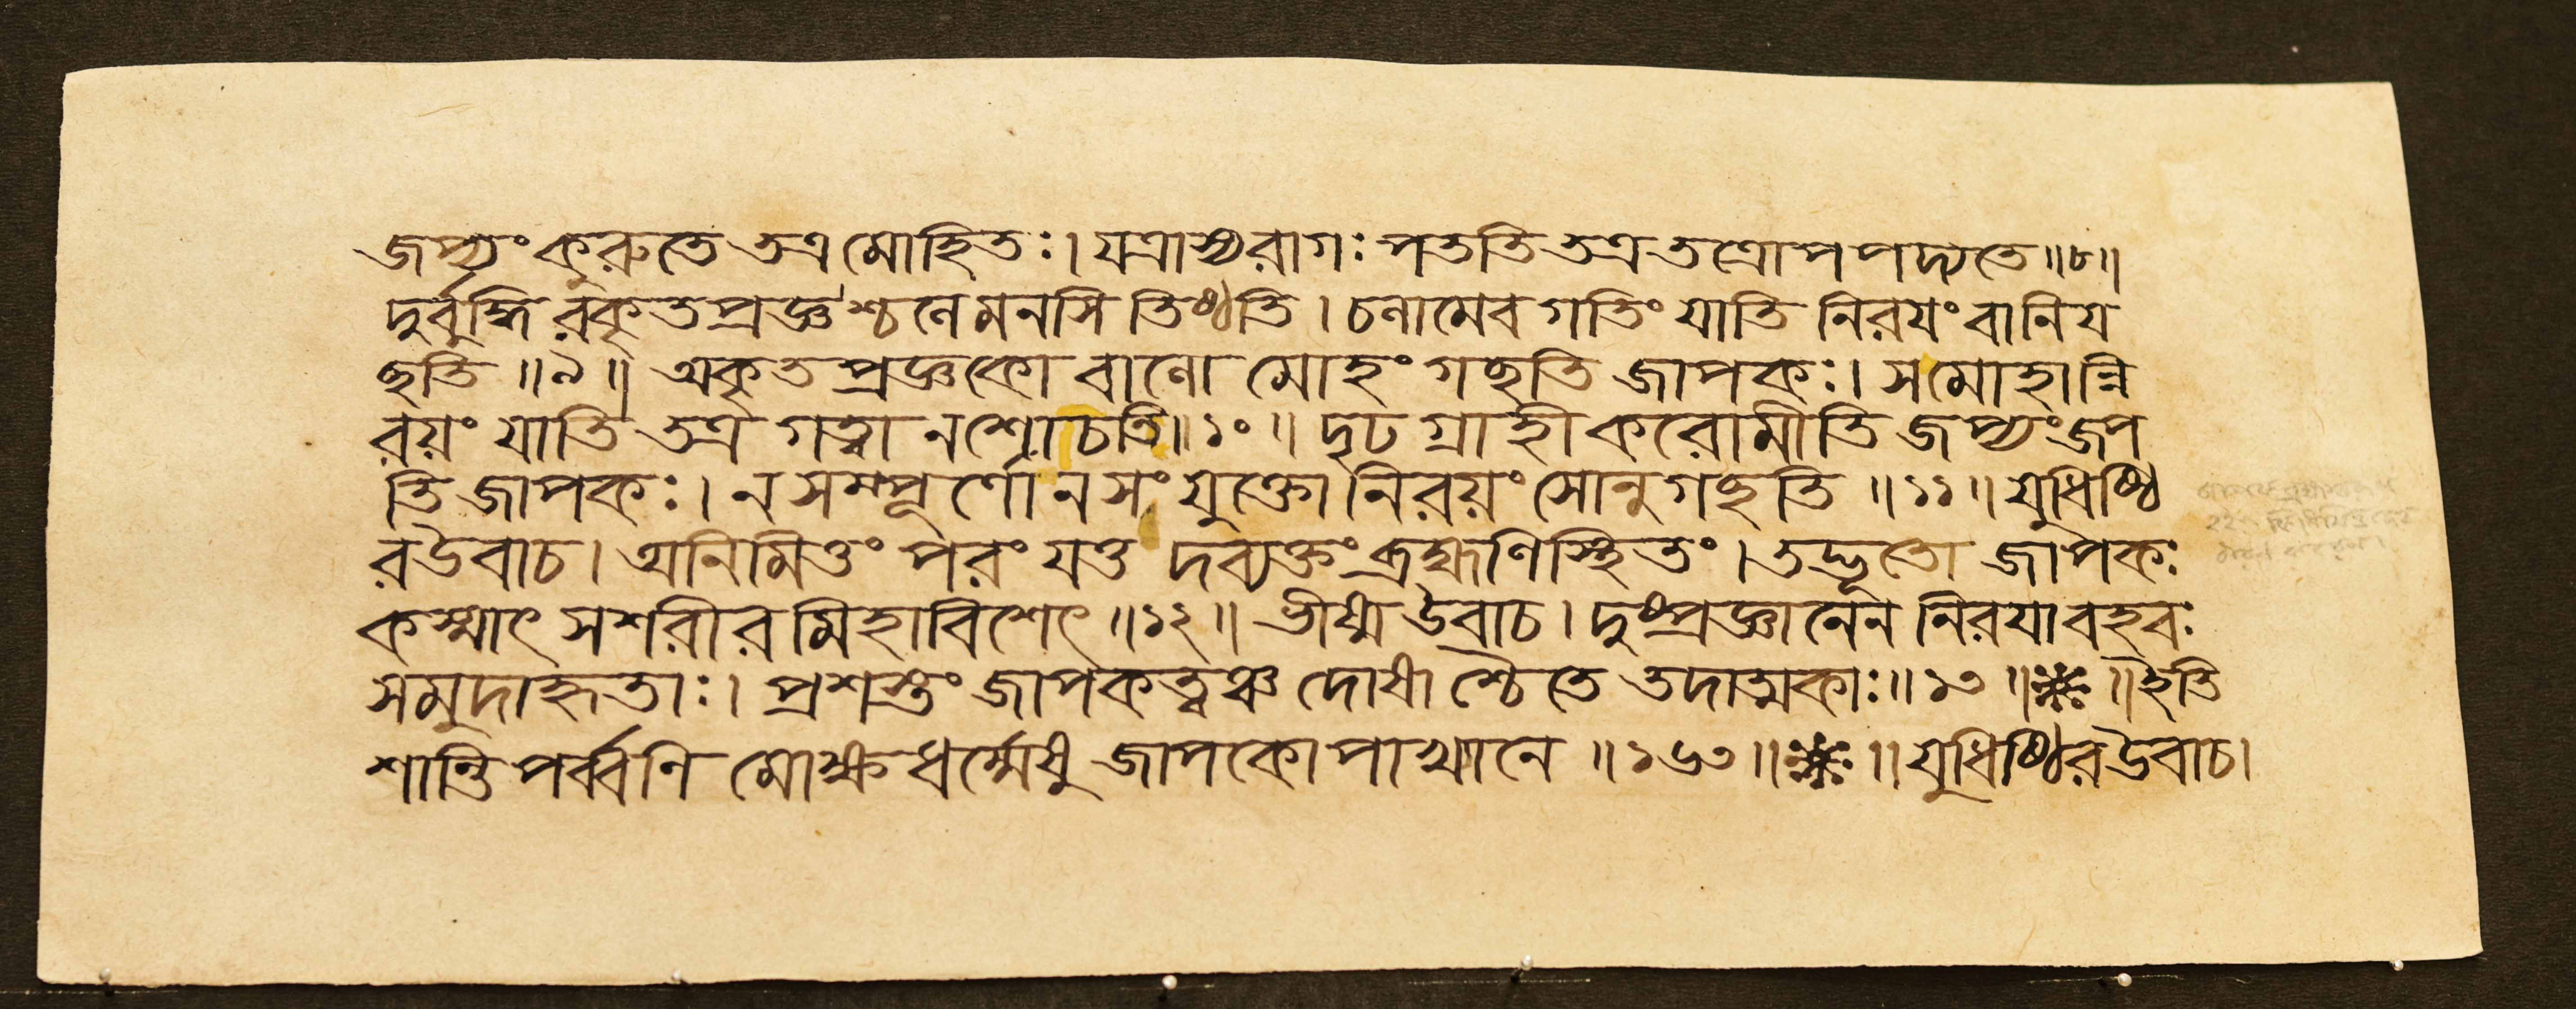 জপ্যং কুরুতে তত্র মোহিতঃ। যত্রাস্য রাগঃ পততি তত্র তত্রোপপদ্যতে॥৮॥
দুর্বুদ্ধিরকৃতপ্রজ্ঞশ্চনে মনসি তিষ্ঠতি। চনামেব গতিং যাতি নিরয়ং বা নিয
ছতি॥৯॥ অকৃতপ্রজ্ঞকো বালো মোহং গছতি জাপকঃ। স মোহান্নি
রয়ং যাতি তত্র গত্বানশোচতি॥১০॥ দৃঢগ্রাহী করোমীতি জপ্যং জপ
তি জাপকঃ। ন সম্পূর্ণো ন সংযুক্তো নিরয়ং সোনুগছতি॥১১॥ যুধিষ্ঠি
র উবাচ। অনিমিত্তং পরং যত্তদব্যক্তং ব্রহ্মণি স্থিতং। তদ্ভূতো জাপকঃ
কস্মাৎ সশরীরমিহাবিশেৎ॥১২॥ ভীষ্ম উবাচ। দুষ্প্রজ্ঞানেন নিরয়া বহবঃ
সমুদাহৃতাঃ। প্রশস্তং জাপকত্বঞ্চ দোষাশ্চৈতে তদাত্মকাঃ॥১৩॥ ॥ইতি
শান্তিপর্ব্বনি মোক্ষধর্ম্মেষু জাপকোপাখ্যানে॥১৬৩॥ ॥যুধিষ্ঠির উবাচ।